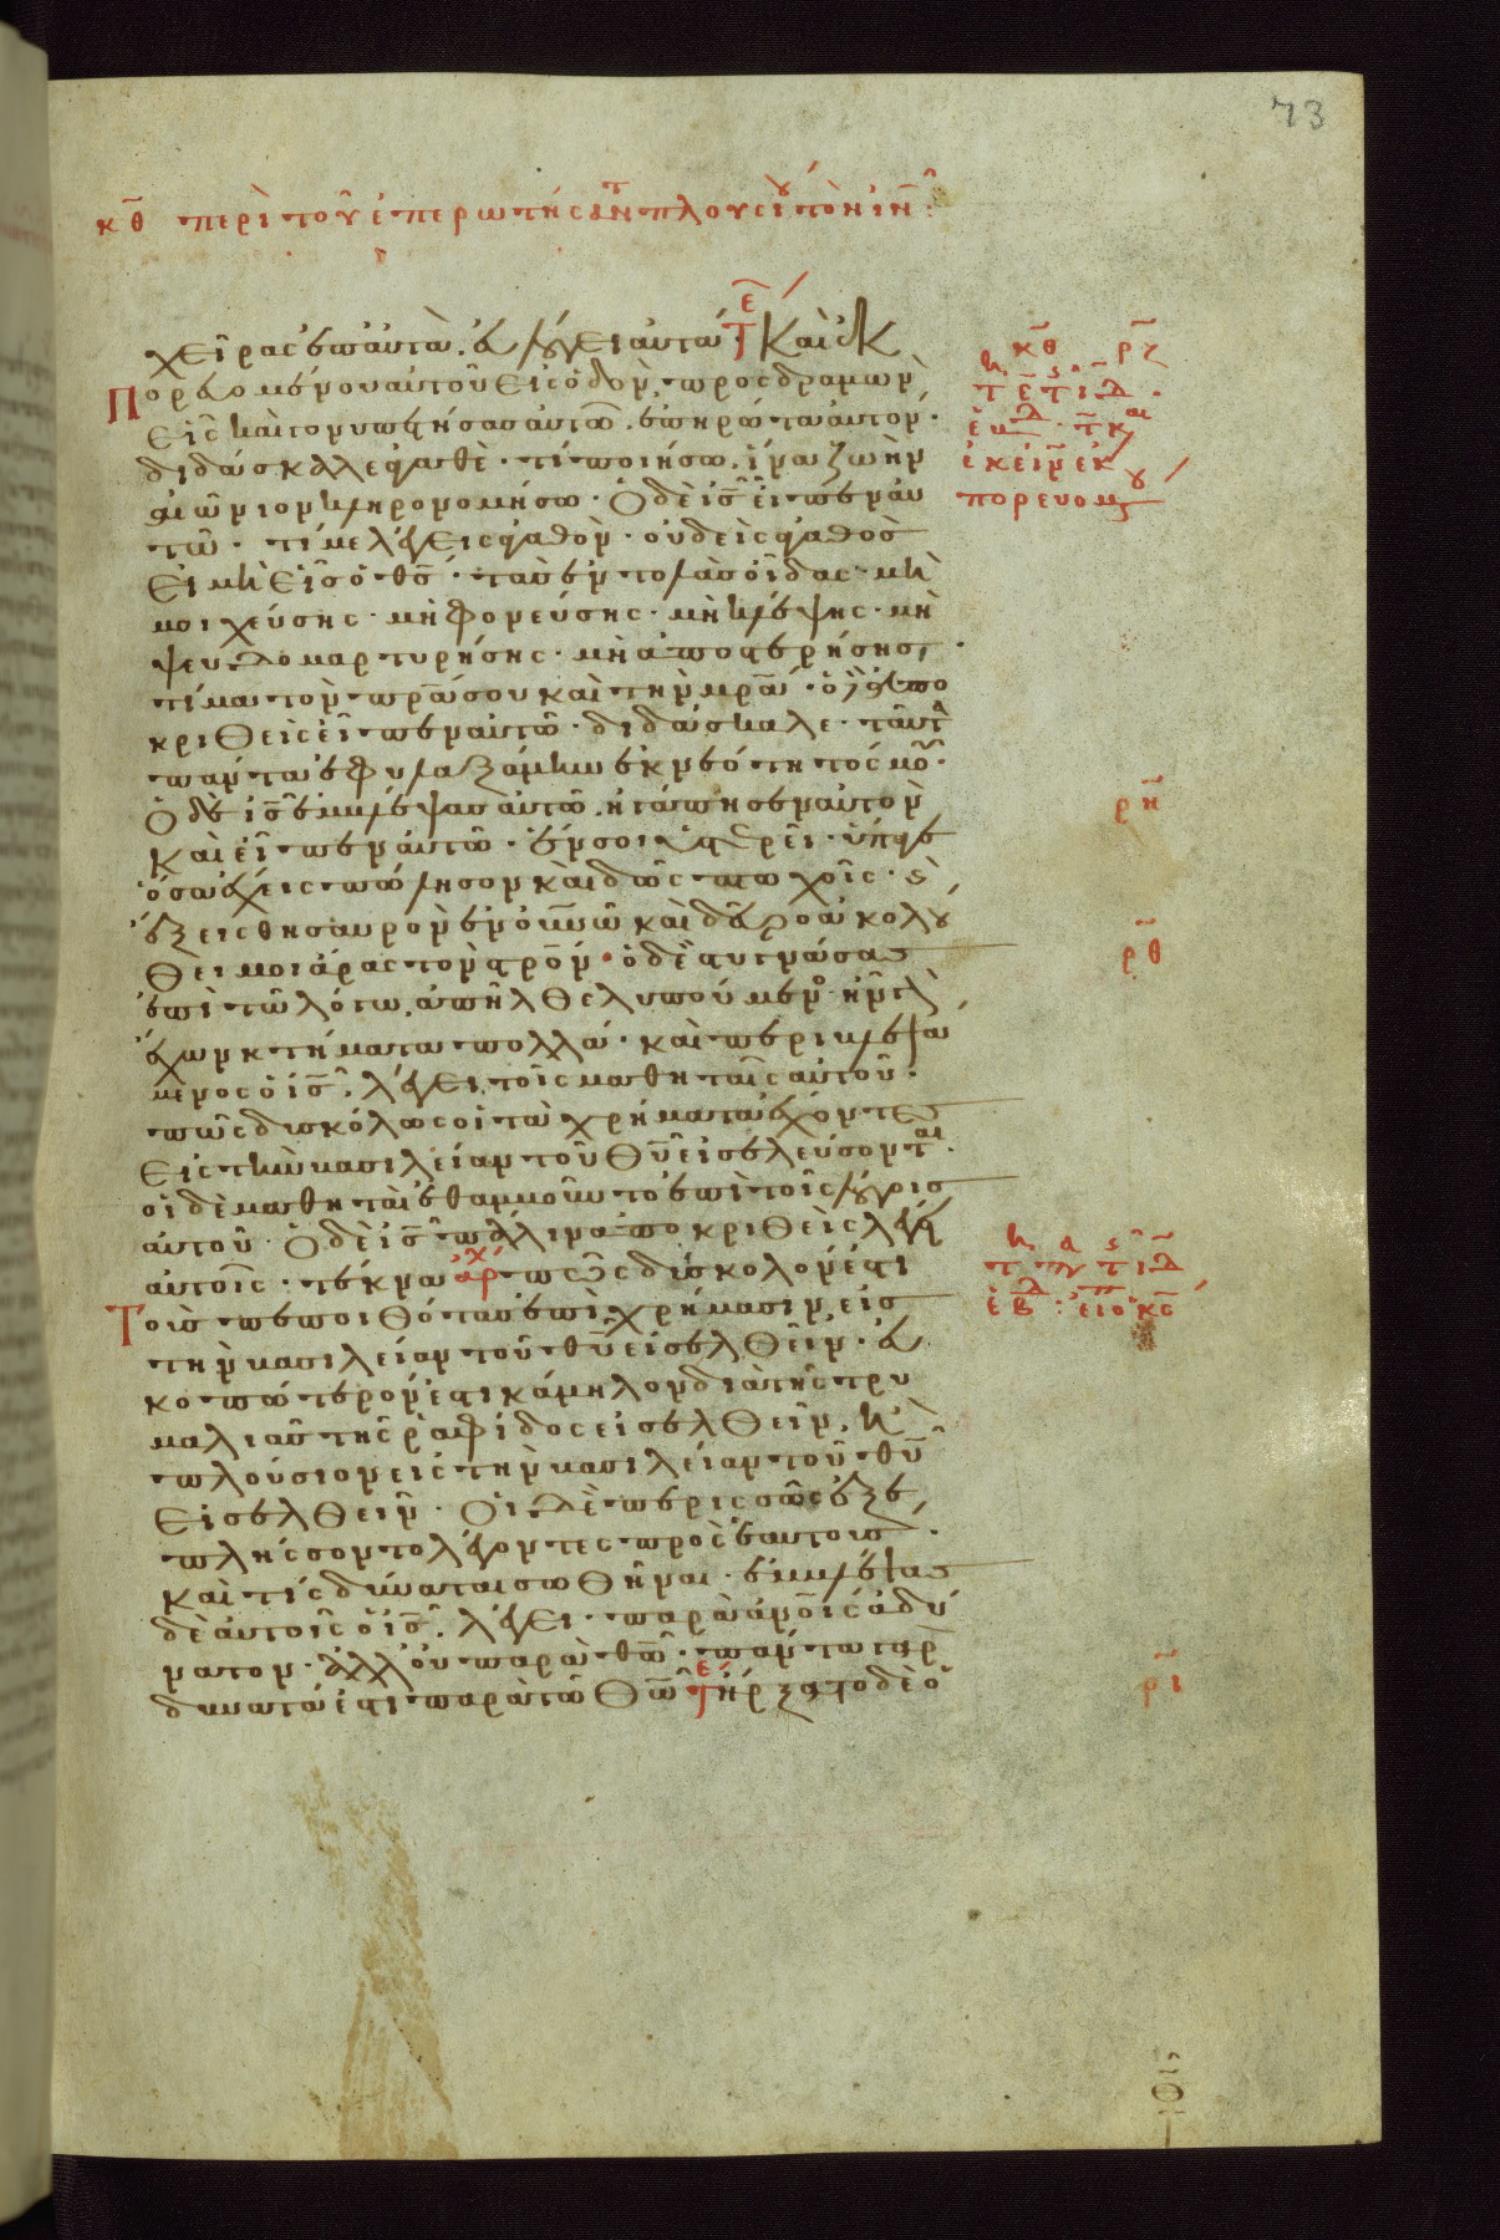 73
κ̅θ̅ περὶ τοῦ ἐπερωτήσαντ πλουσίου τὸν ι̅ν̅:
χεῖρας ἐπ αὐτὰ. εὐλόγει αὐτά· Καὶ ἐκ
κ̅θ̅ ρ̅ζ̅
πορευομένου αὐτοῦ εἰς ὁδὸν, προσδραμὼν
εἷς καὶ γονυπετήσας αὐτῶ. ἐπηρώτα αὐτον·
διδάσκαλε ἀγαθὲ· τί ποιήσω. ἵνα ζωὴν
ἐκείν ἐκ
αἰώνιον κληρονομήσω· Ὁ δὲ ι̅ς̅ εἶπεν αὐ
πορευομ
τῶ· τί με λέγεις ἀγαθὸν· οὐδεὶς ἀγαθὸς
εἰ μὴ εἷς ὁ θ̅ς̅· τὰς ἐντολὰς οἶδας· μὴ
μοιχεύσης· μὴ φονεύσης· μὴ κλέψης· μὴ
ψευδομαρτυρήσης· μὴ ἀποστερήσης·
τίμα τὸν π̅ρ̅α σου καὶ τὴν μ̅ρ̅α· ὁ δὲ ἀπο
κριθεὶς εἶπεν αὐτῶ· διδάσκαλε· ταῦτα
πάντα ἐφυλαξάμην ἐκ νεότητός μου·
Ὁ δὲ ι̅ς̅ ἐμβλέψας αὐτῶ. ἠγάπησεν αὐτὸν
ρ̅η̅
καὶ εἶπεν αὐτῶ· ἕν σοι ὑστερεῖ· ὕπαγε
ὅσα ἔχεις πώλησον καὶ δὸς πτωχοῖς· ϗ
ἕξεις θησαυρὸν ἐν ο̅υ̅ν̅ω̅ καὶ δεῦρο ἀκολού
θει μοι ἄρας τὸν σ̅τ̅ρ̅ο̅ν̅· ὁ δὲ στυγνάσας
ρ̅θ̅
ἐπὶ τῶ λόγω. ἀπῆλθε λυπούμενο· ἦν γὰρ
ἔχων κτήματα πολλά· καὶ περιβλεψά
μενος ὁ ι̅ς̅. λέγει τοῖς μαθηταῖς αὐτοῦ·
πῶς δυσκόλως οἱ τὰ χρήματα ἔχοντες
εἰς τὴν βασιλείαν τοῦ θ̅υ̅ εἰσελεύσονται·
οἱ δὲ μαθηταὶ ἐθαμβοῦντο ἐπὶ τοῖς λόγοις
αὐτοῦ· Ὁ δὲ ι̅ς̅ πάλιν ἀποκριθεὶς λέγει
αὐτοῖς· τέκνα ἀρχ πῶς δύσκολόν ἐστι
τοὺς πεποιθότας ἐπὶ χρήμασιν, εἰς
τὴν βασιλείαν τοῦ θ̅υ̅ εἰσελθεῖν· εὐ
κοπώτερόν ἐστι κάμηλον διὰ τῆς τρυ
μαλιᾶς τῆς ῥαφίδος εἰσελθεῖν, ἢ
πλούσιον εἰς τὴν βασιλείαν τοῦ θ̅υ̅
εἰσελθεῖν· Οἱ δὲ περισσῶς ἐξε
πλήσσοντο λέγοντες πρὸς ἑαυτούς·
καὶ τίς δύναται σωθῆναι· ἐμβλέψας
δὲ αὐτοῖς ὁ ι̅ς̅. λέγει· παρὰ α̅ν̅ο̅ι̅ς̅ ἀδύ
νατον· ἀλλ οὐ παρὰ θ̅ω̅· πάντα γὰρ
δυνατά ἐστι παρὰ τῶ θ̅ω̅· ἤρξατο δὲ ὁ
ρ̅ι̅